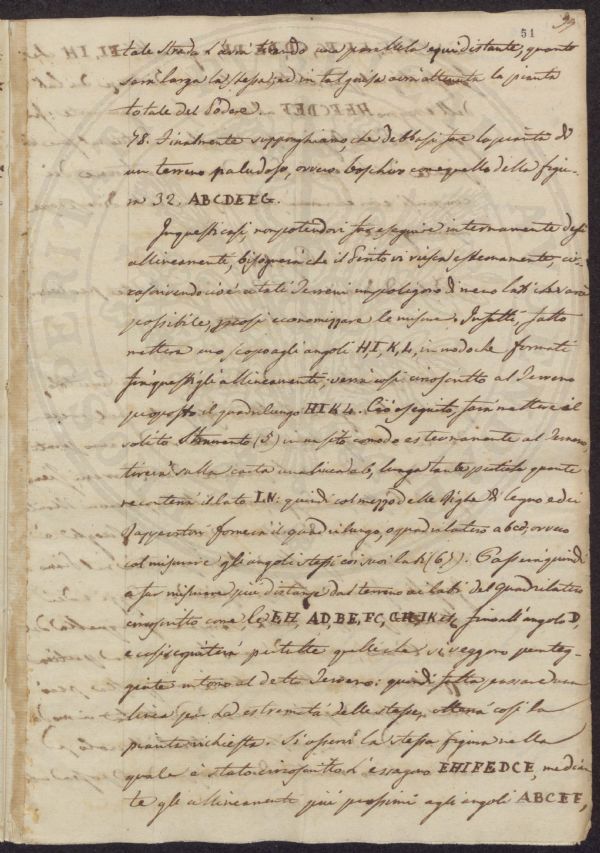 51
39
tale strada d'essa tirando una parallela equidistante, quanto
sarà larga la stessa; ed in tal guisa avrà ottenuta la pianta
totale del Podere.
78. Finalmente supponghiamo, che debbasi fare la pianta di
un terreno paludoso, ovvero boschivo come quello della figu-
ra 32. ABCDEFG.
In questi casi, non potendovi far eseguire internamente degli
allineamenti, bisognerà che il Perito vi riesca esternamente, cir-
coscrivendo cioè a tali Terreni un poligono di meno lati che sarà
possibile, per così economizzare le misure. Infatti, fatto
mettere uno scopo agli angoli H, I, K, L, in modo che formati
fra questi gli allineamenti, verrà così circoscritto al Terreno
proposto il quadrilungo HIKL. Ciò eseguito, farà mettere il
solito Stromento (5) in un sito comodo esternamente al Terreno,
tirerà sulla carta una linea ab, lunga tante particelle quante
ne conterrà il lato : quindi col mezzo delle Righe di legno ed ei
Rapportatori formerà il quadrilungo, o quadrilatero abcd, ovvero
col misurare gli angoli stessi coi suoi lati (6,). Passerà quindi
a far misurare più distanze dal terreno ai lati del quadrilatero
circoscritto come le EH, AD, BE, FC, fino all'angolo D,
e così seguiterà per tutte quelle che si veggono punteg-
giate intorno al detto Terreno: quindi fatta passare una
linea per le estremità delle stesse, otterrà così la
pianta richiesta. Si osservi la stessa figura nella
quale è stato circoscritto l'essagono EHIFEDCE, median-
te gli allineamenti più prossimi agli angoli ABCEF,